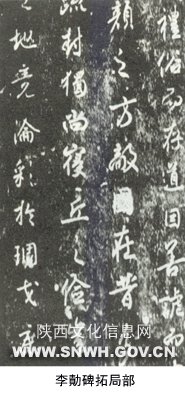 禮俗而在道因善誘而
顏之方敵在昔
疏封獨尚寢丘之
地竟淪彩於琱戈
陕西文化信息网
WWW.SNWH.GOV.CN
李勣碑拓局部